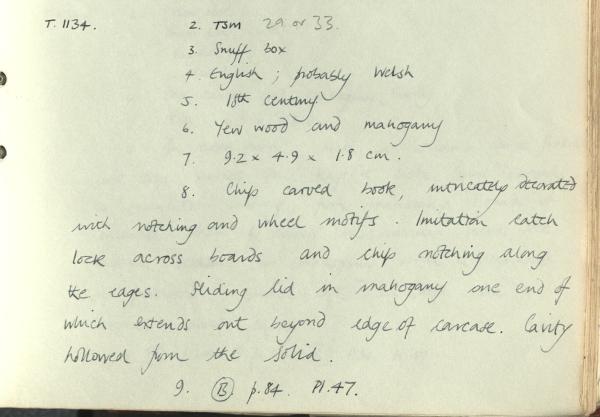 T. 1134. 2. TSM 29 or 33.
3. Snuff box
4. English ; probably Welsh
5. 18th century
6. Yew wood and mahogany
7. 9.2 x 4.9 x 1.8 cm.
8. Chip carved book, intricately decorated
with notching and wheel motifs. Imitation catch
lock across boards and chip notching along
the edges. Sliding lid in mahogany one end of
which extends out beyond edge of carcase. Cavity
hollowed from the solid.
9. B. p.84. Pl.47.